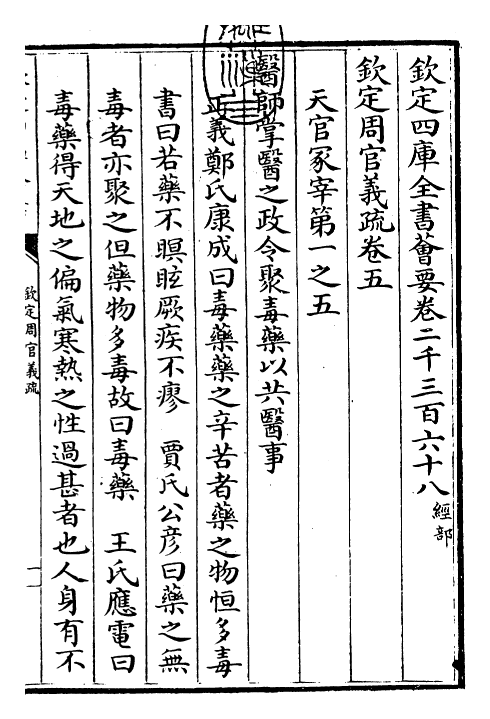 欽定四庫全書薈要卷二千三百六十八 經部
欽定周官義疏卷五
天官冢宰第一之五
醫師掌醫之政令聚毒藥以共醫事
正義鄭氏康成曰毒藥藥之辛苦者藥之物恒多毒
書曰若藥不瞑眩厥疾不瘳 賈氏公彦曰藥之無
毒者亦聚之但藥物多毒故曰毒藥 王氏應電曰
毒藥得天地之偏氣寒熱之性過甚者也人身有不
欽定周官義疏
一